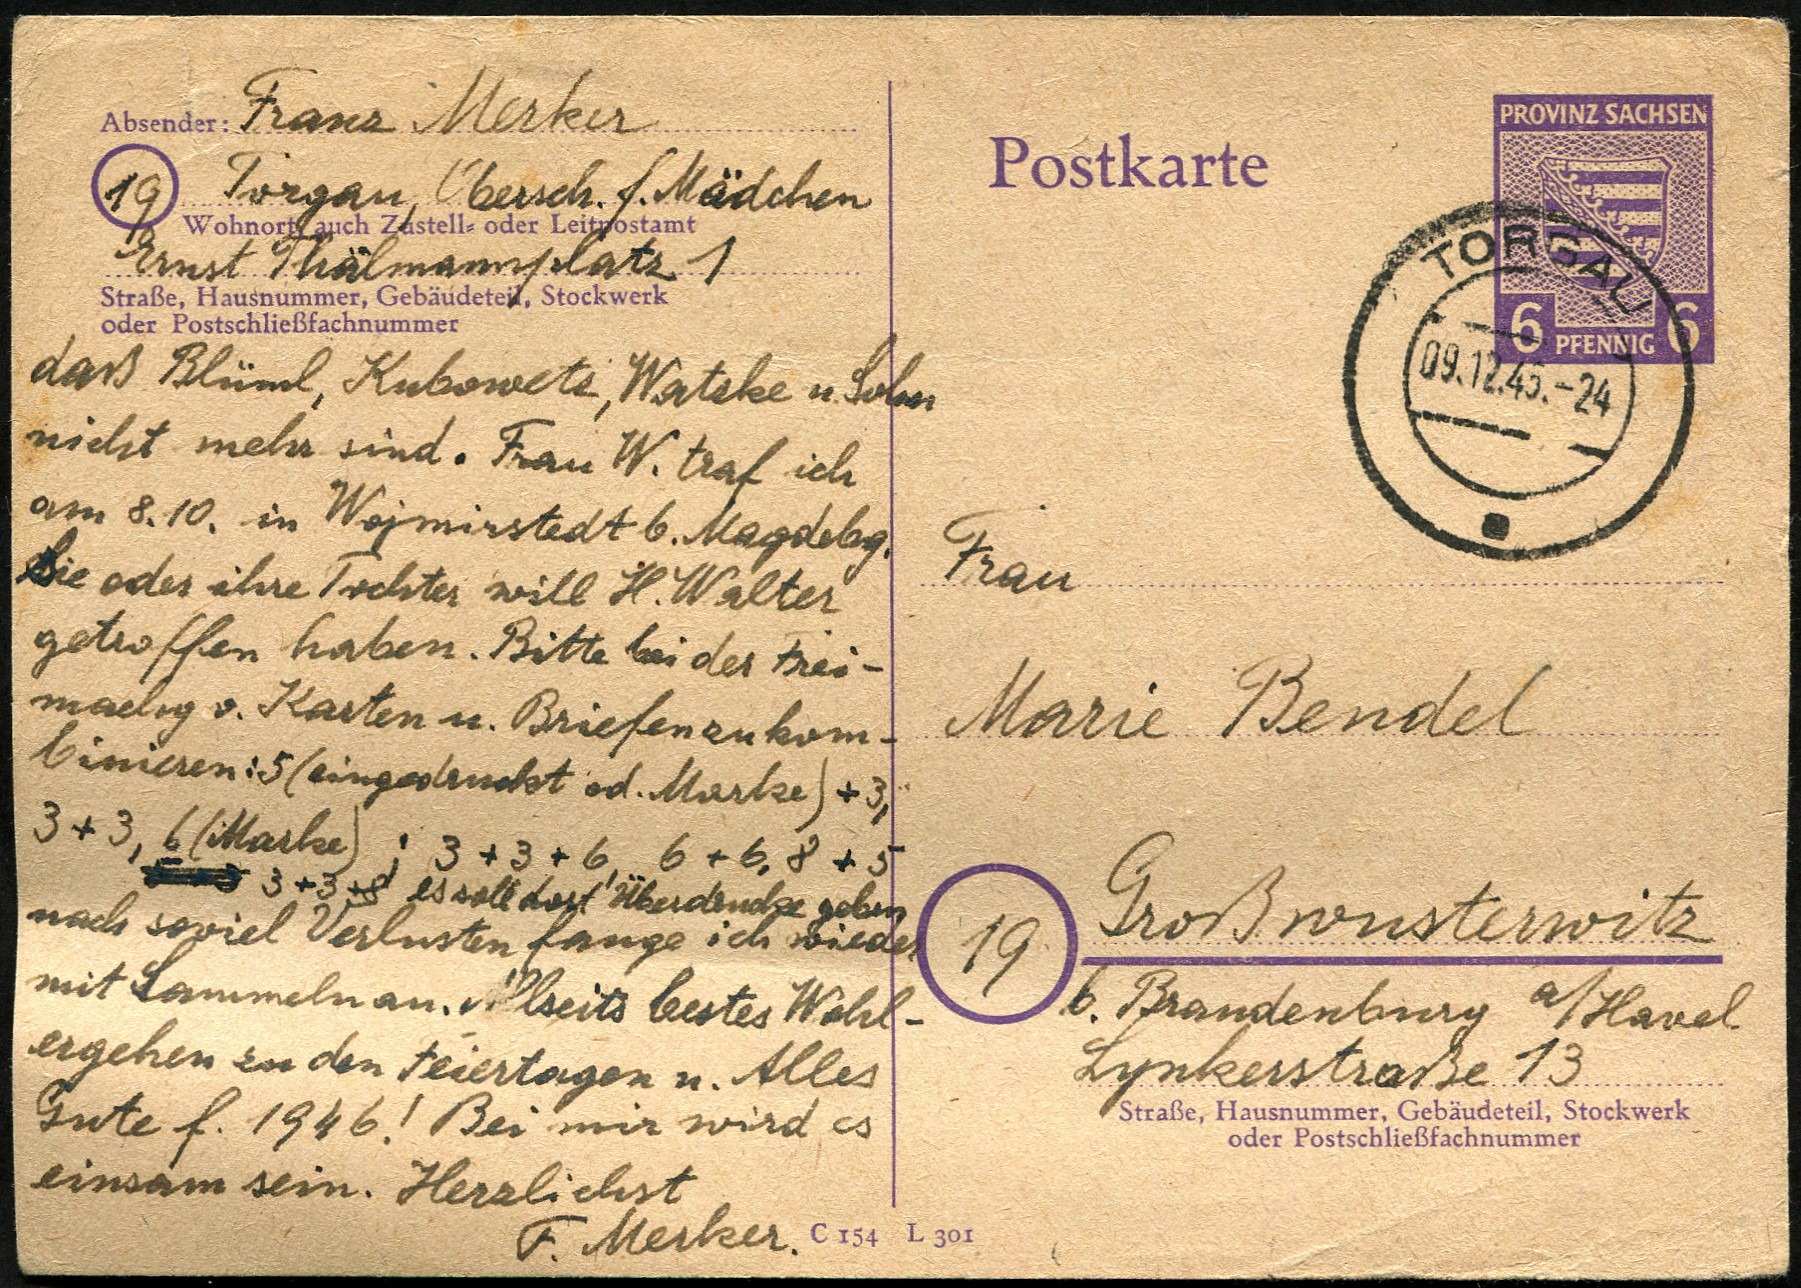 Absender: Franz Merker
19 Torgau, Obersch. f. Mädchen
Wohnort, auch Zustell- oder Leitpostamt
Ernst Thälmannplatz 1
Straße, Hausnummer, Gebäudeteil, Stockwerk
oder Postschließfachnummer
daß Blüml, Kubowetz, Watzke u. Sohn
nicht mehr sind. Frau W. traf ich
am 8.10. in Wojmirstedt b. Magdebg.
Sie oder ihre Tochter will H. Walter
getroffen haben. Bitte bei der Frei-
machg v. Karten u. Briefen zu kom-
binieren: 5 (eingedruckt od. Marke) + 3,
3 + 3, 6 (Marke) ; 3 + 3 + 6, 6 + 6, 8 + 5
3 + 3 + 8; es soll dort Überdrucke geben
nach soviel Verlusten fange ich wieder
mit Sammeln an. Allseits bestes Wohl-
ergehen zu den Feiertagen u. Alles
Gute f. 1946! Bei mir wird es
einsam sein. Herzlichst
F. Merker.
C 154 L 301
Postkarte
PROVINZ SACHSEN
6 PFENNIG 6
TORGAU
09.12.45.-24
Frau
Marie Bendel
19 Großwusterwitz
b. Brandenburg a/Havel
Lynkerstraße 13
Straße, Hausnummer, Gebäudeteil, Stockwerk
oder Postschließfachnummer